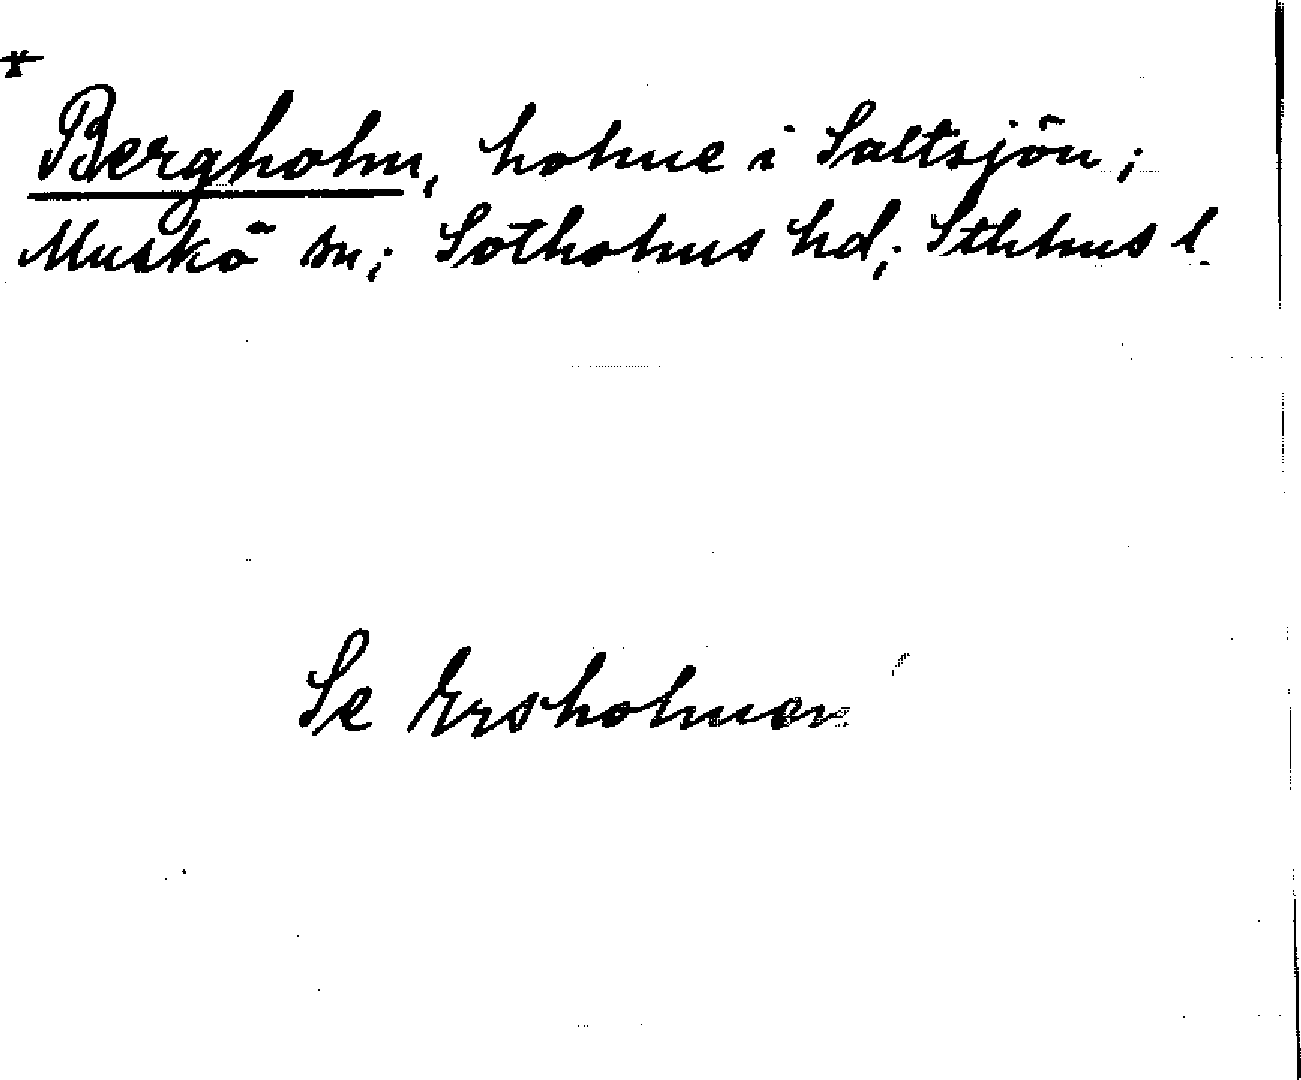 *
Bergholm, holme i Saltsjön;
Muskö sn; Sotholms hd; Sthlms l.
Se Ersholmen